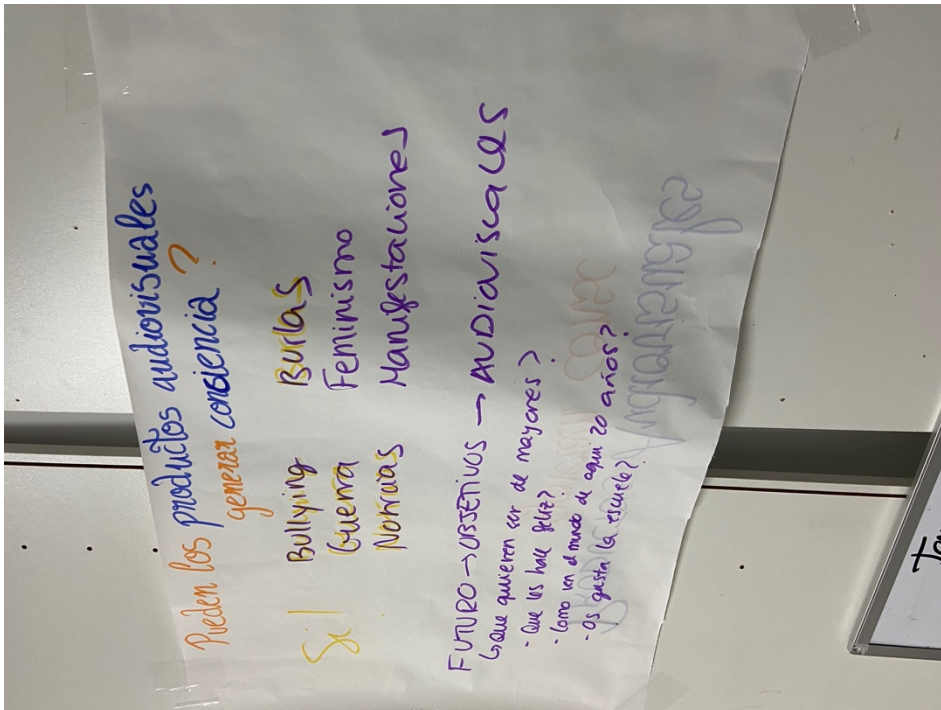 Pueden los productos audiovisuales
generar consiencia?
Si! Bullying Burlas
Guerra Feminismo
Noticias Manifestaciones
FUTURO → OBJETIVOS → AUDIOVISUALES
↳ que quieren ser de mayores?
- Que les hace feliz?
- Como ven el mundo de aqui 20 años?
- Os gusta la escuela?